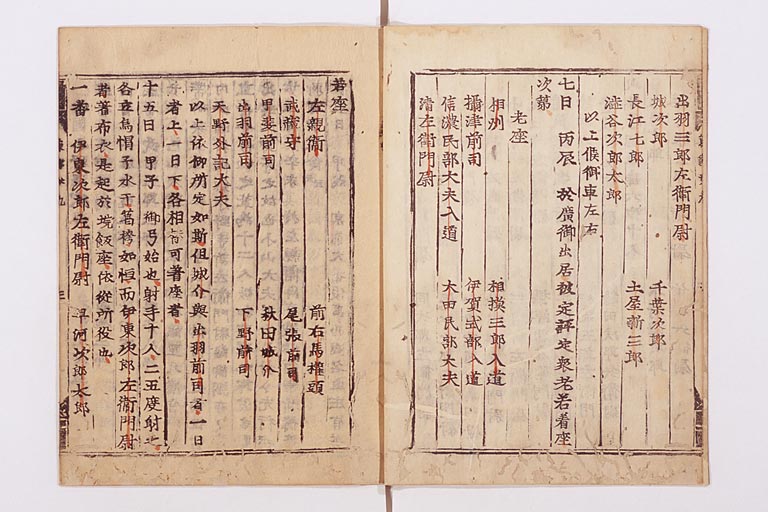 出羽三郎左衛門尉
城次郎 千葉次郎
長江七郎 土屋新三郎
澁谷次郎太郎
以上候御車左右
七日 丙辰 於廣御出居被定評定衆老若着座
次第
老座
相州 相摸三郎入道
攝津前司 伊賀式部入道
信濃民部大夫入道 太田民部大夫
清左衛門尉
若座
左親衛 前右馬權頭
武藏守 尾張前司
甲斐前司 秋田城介
出羽前司 下野前司
天野外記大夫
以上依御所定如斯但城介與出羽前司者一日
者上一日下各相可着座者
十五日 甲子 御弓始也射手十人二五度射之
各立烏帽子水干葛袴如恒而伊東次郎左衛門尉
着布衣是起於垸飯座依從所役也
一番 伊東次郎左衛門尉 早河次郎太郎